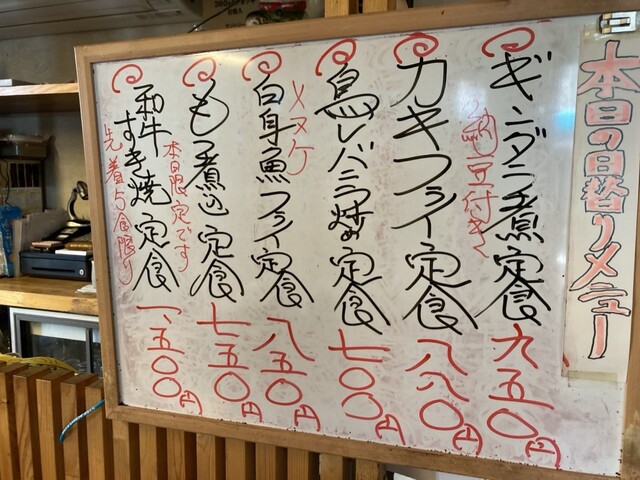 本日の日替りメニュー
ギンダラ煮定食
納豆付き
九五〇円
カキフライ定食
八八〇円
鳥レバニラ炒め定食
七〇〇円
メヌケ
白身魚フライ定食
八五〇円
もつ煮込定食
本日限定です
七五〇円
和牛すき焼定食
先着5食限り
一、五〇〇円